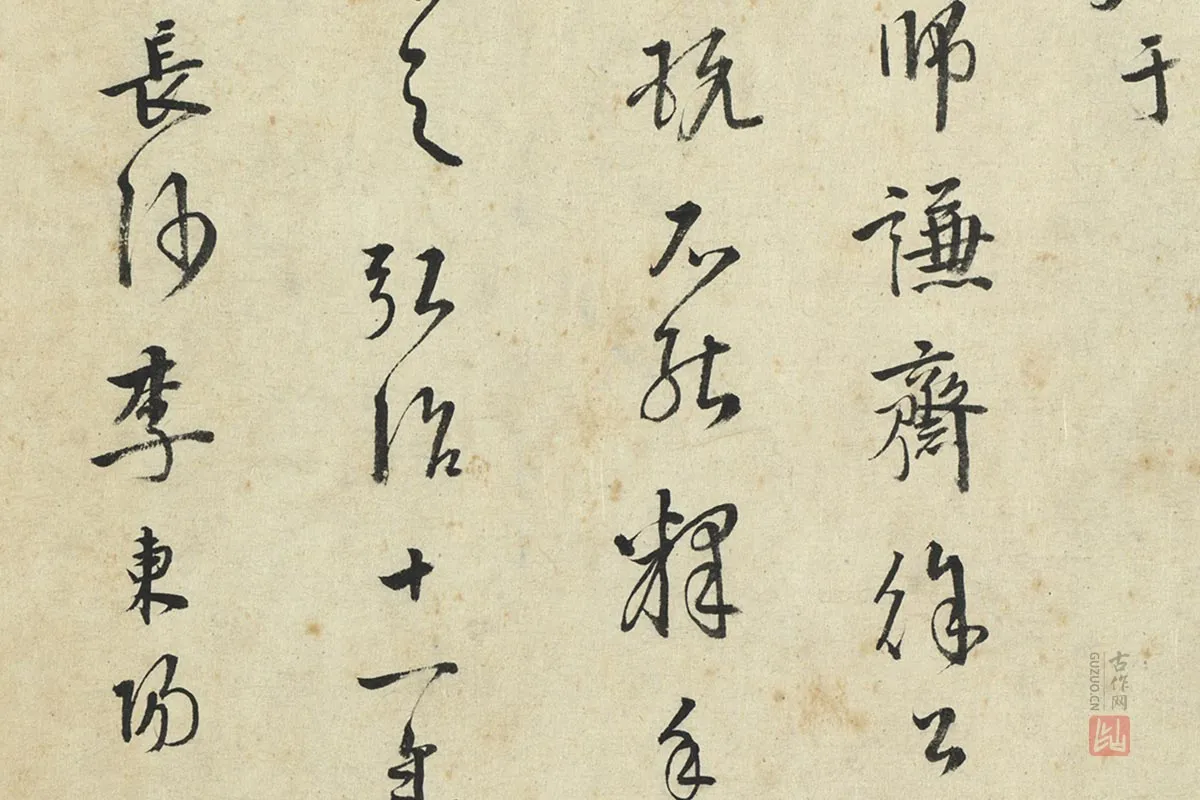 于
師謙齋徐公
玩不能釋手
之弘治十一年
長沙李東陽
古作网
GUZUO.CN